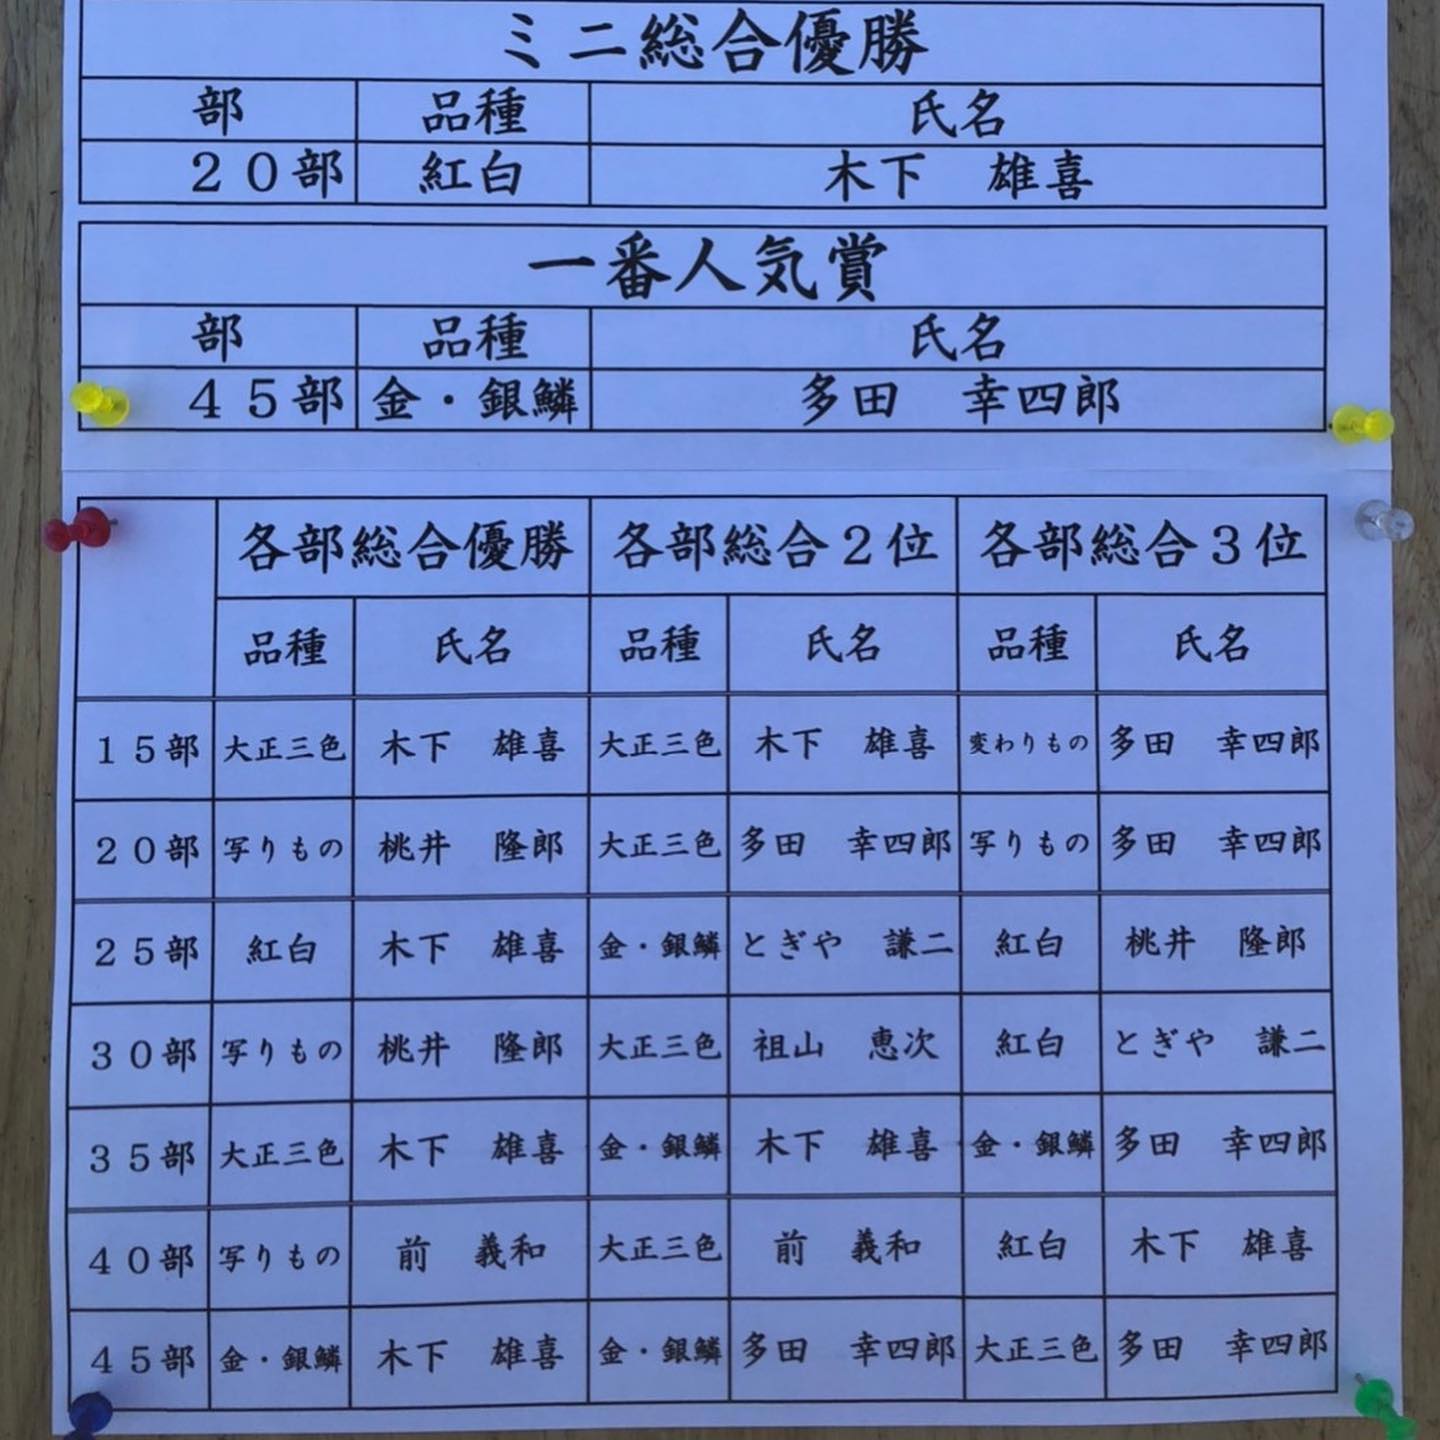 ミニ総合優勝
部 品種 氏名
２０部 紅白 木下 雄喜
一番人気賞
部 品種 氏名
４５部 金・銀鱗 多田 幸四郎
各部総合優勝 各部総合２位 各部総合３位
品種 氏名 品種 氏名 品種 氏名
１５部 大正三色 木下 雄喜 大正三色 木下 雄喜 変わりもの 多田 幸四郎
２０部 写りもの 桃井 隆郎 大正三色 多田 幸四郎 写りもの 多田 幸四郎
２５部 紅白 木下 雄喜 金・銀鱗 とぎや 謙二 紅白 桃井 隆郎
３０部 写りもの 桃井 隆郎 大正三色 祖山 恵次 紅白 とぎや 謙二
３５部 大正三色 木下 雄喜 金・銀鱗 木下 雄喜 金・銀鱗 多田 幸四郎
４０部 写りもの 前 義和 大正三色 前 義和 紅白 木下 雄喜
４５部 金・銀鱗 木下 雄喜 金・銀鱗 多田 幸四郎 大正三色 多田 幸四郎